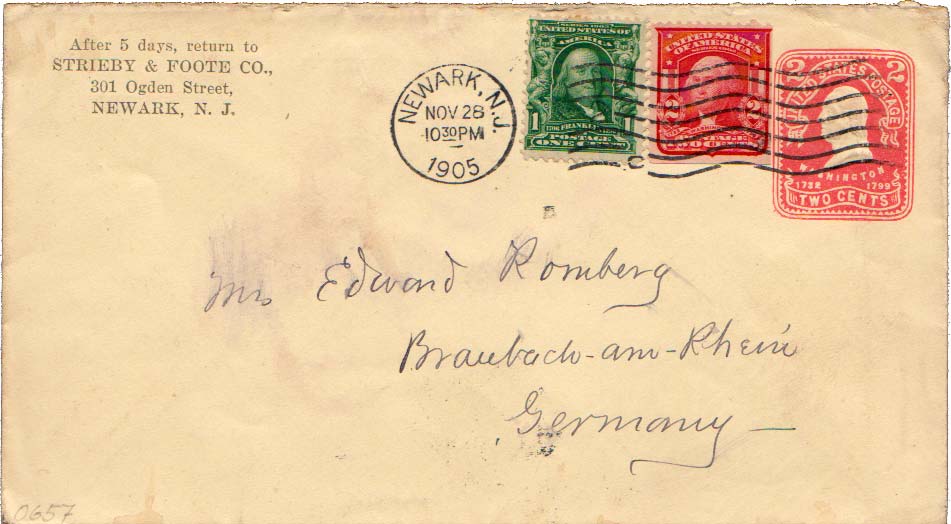 After 5 days, return to
STRIEBY & FOOTE CO.,
301 Ogden Street,
NEWARK, N. J.
NEWARK, N.J.
NOV 28
10 30 PM
1905
SERIES 1902
UNITED STATES OF
AMERICA
1 1
FRANKLIN
POSTAGE
ONE CENT
UNITED STATES
OF AMERICA
2 2
TWO CENTS
UNITED STATES POSTAGE
2 2
WASHINGTON
1732 1799
TWO CENTS
Mrs Edward Romberg
Braubach-am-Rhein
Germany
0657